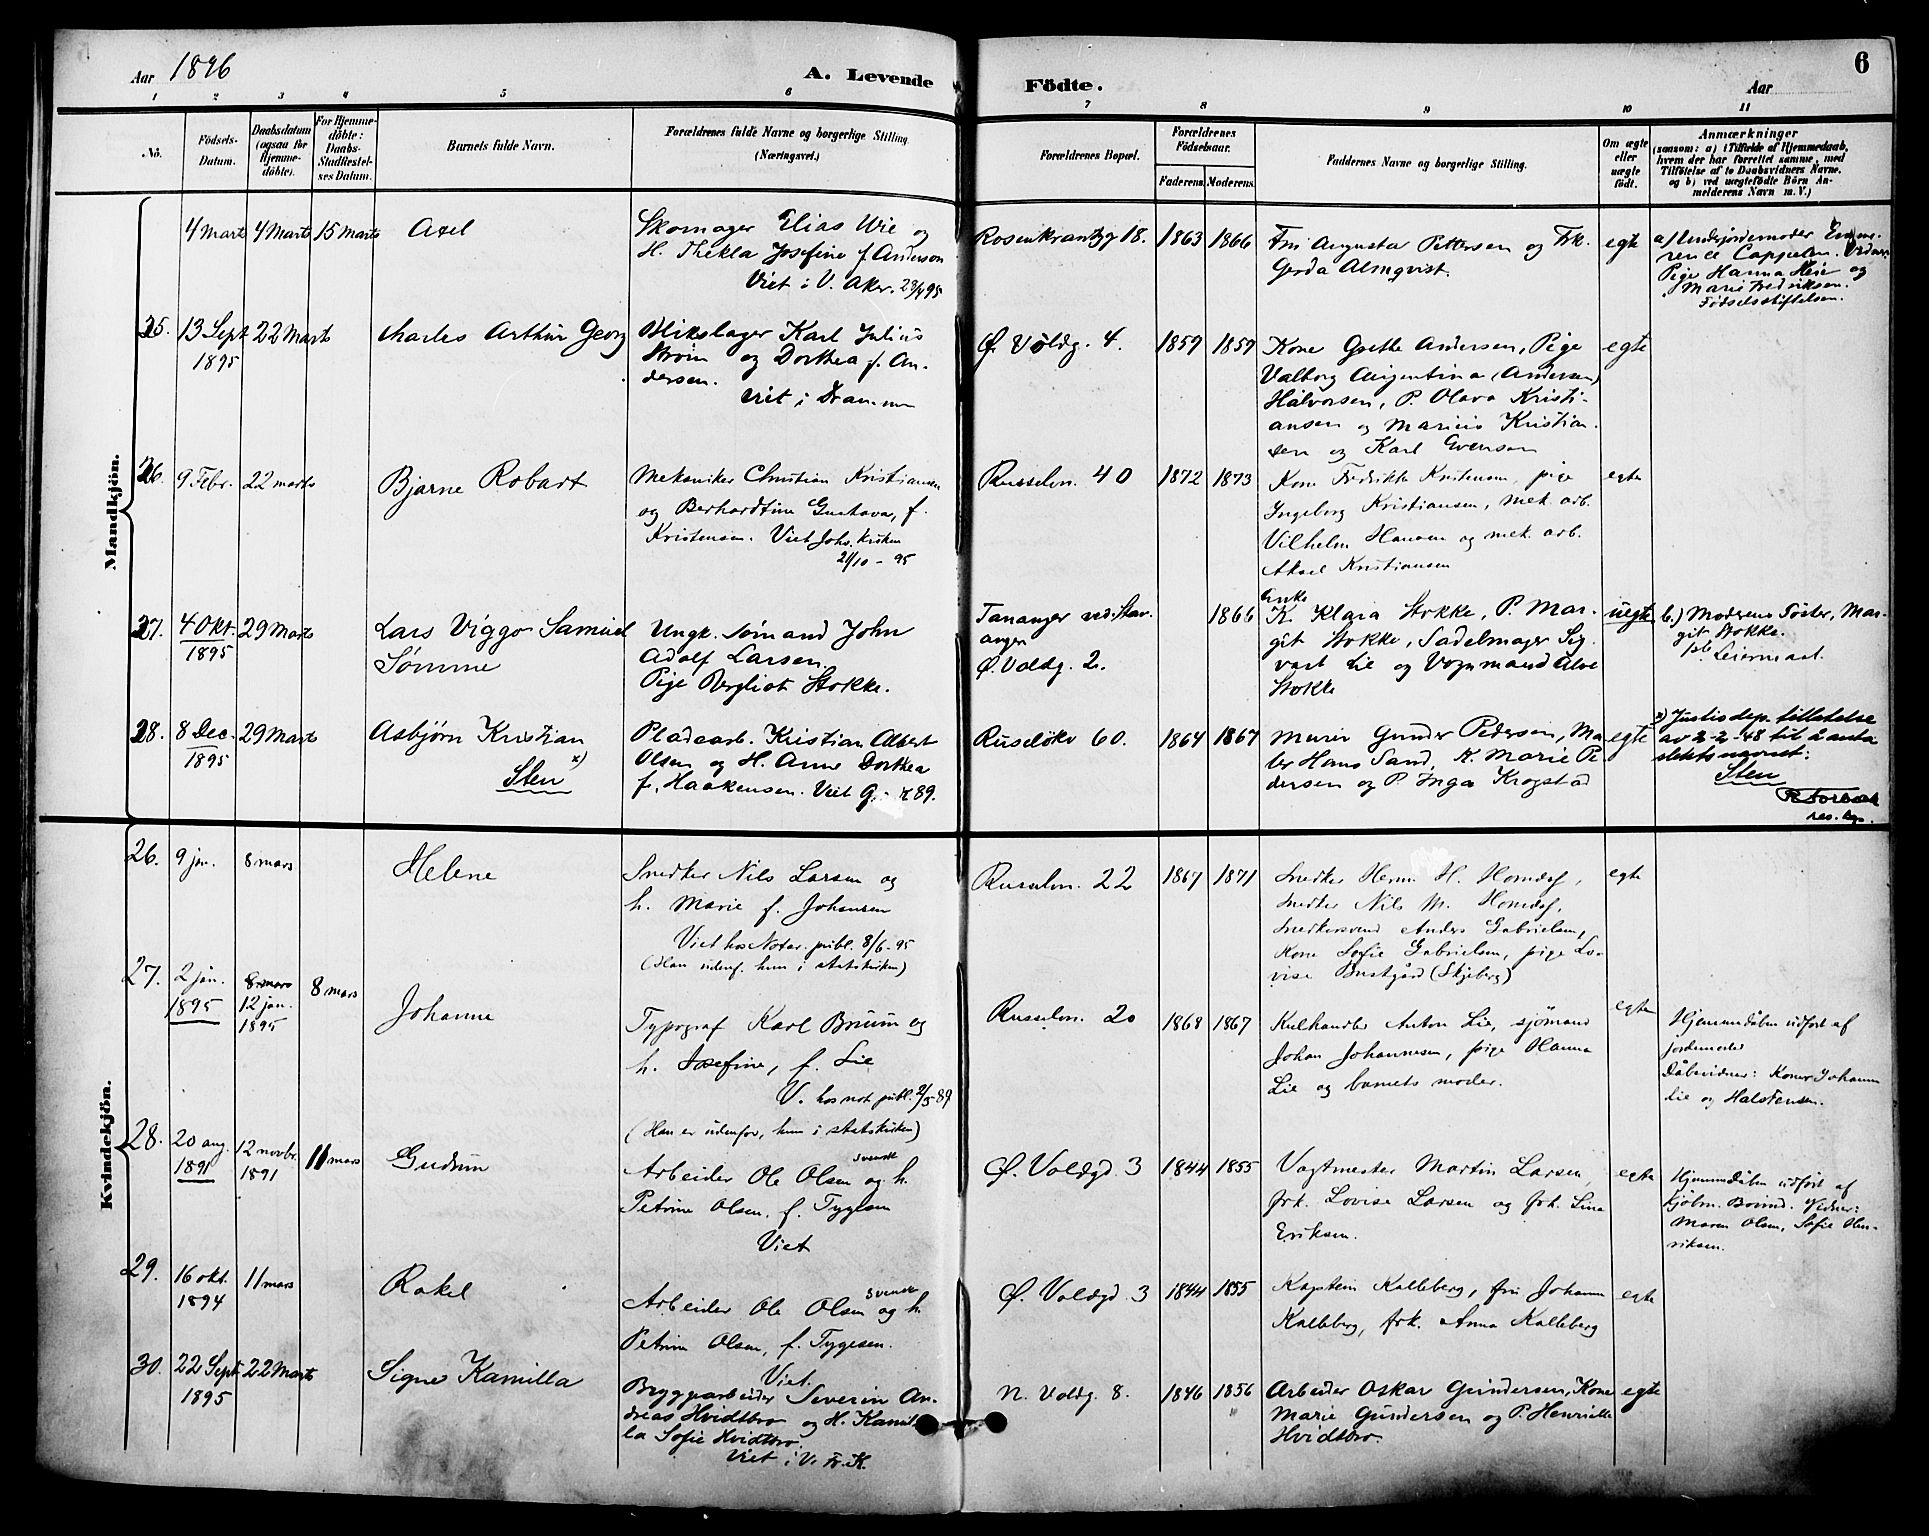 Aar 1896
A. Levende
Födte.
Aar
6
1 2 3 4 5 6 7 8 9 10 11
No.
Födsels-
Datum.
Daabsdatum
(ogsaa for
Hjemme-
döbte).
For Hjemme-
döbte:
Daabs-
Stadfæstel-
ses Datum.
Barnets fulde Navn.
Forældrenes fulde Navne og borgerlige Stilling
(Næringsvei.)
Forældrenes Bopæl.
Forældrenes
Födselsaar.
Faderens. Moderens.
Faddernes Navne og borgerlige Stilling.
Om ægte
eller
uægte
födt.
Anmærkninger
(saasom: a) i Tilfælde af Hjemmedaab,
hvem der har forrettet samme, med
Tilföielse af to Daabsvidners Navne.
og b) ved uægtefödte Börn An-
melderens Navn m. V.)
Mandkjön.
4 Marts 4 Marts 15 Marts
Axel
Skomager Elias Wie og
H. Thekla Josefine f. Anderson
Viet i V. Aker. 23/4 95
Rosenkrantzg 18.
1863 1866
Fru Augusta Pettersen og Frk.
Gerda Almqvist.
egte
a) Underjordemoder
Cappelen.
Pige Hanna Heie og
Marie Fredriksen.
Födselsstiftelsen.
25.
13 Sept
1895
22 Marts
Charles Arthur Georg
Blikslager Karl Julius
Strøm og Dorthea f. An-
dersen.
Viet i Drammen
Ø. Voldg. 4.
1859 1859
Kone Grethe Andersen, Pige
Valborg Argentina (Andersen)
Halvorsen, P. Olava Kristi-
ansen og Marius Kristian-
sen og Karl Evensen
egte
26.
9 Febr. 22 marts
Bjarne Robart
Mekaniker Christian Kristiansen
og Berhardtine Gustava, f.
Kristensen. Viet Johs. kirken
21/10 - 95
Russeløn. 40
1872 1873
Kone Fredrikke Kristensen, pige
Ingeborg Kristiansen, mek. arb.
Vilhelm Hansen og mek. arb.
Aksel Kristiansen
egte
27.
4 Okt.
1895
29 Marts
Lars Viggo Samuel
Sømme
Ungk. Sømand John
Adolf Larsen.
Pige Bergliot Stokke.
Tananger ved Stav-
anger
Ø. Voldg. 2.
1866
Enke
K. Klara Stokke, P. Mar-
git Stokke, Sadelmager Sig-
vart Lie og Vognmand Alve
Stokke
uegte
b.) Moderens Søster, Mar-
git Stokke.
1ste Leiermaal.
28.
8 Dec.
1895
29 Marts
Asbjørn Kristian
x)
Sten
Pladearb. Kristian Albert
Olsen og H. Anne Dorthea
f. Haakensen. Viet
89.
Ruseløkv 60.
1864 1867
Murer Gunder Pedersen, Ma-
ler Hans Sand, K. Marie Pe-
dersen og P. Inga Krogstad
egte
x) Justisdep. tillatelse
av 2-2-48 til å anta
slektsnavnet:
Sten
res. kap.
Kvindekjön.
26.
9 jan. 8 mars
Helene
Snedker Nils Larsen og
h. Marie f. Johansen
Viet hos Notar. publ. 8/6 - 95
(Han udenf. hun i statskirken)
Russeløn. 22
1867 1871
Snedker Herm. H. Homdef,
snedker Nils M. Homdef,
snedkersvend Anders Gabrielsen,
kone Sofie Gabrielsen, pige Lo-
vise Bustgård (Skjeberg)
egte
27.
2 jan.
1895
8 mars
12 jan.
1895
8 mars
Johanne
Typograf Karl Bruun og
h. Josefine, f. Lie
V. hos not publ. 2/5 89
(Han er udenfor, hun i statskirken)
Russeløn. 20
1868 1867
Kulhandler Anton Lie, sjömand
Johan Johannesen, pige Hanna
Lie og barnets moder.
egte
Hjemmedåben udført af
jordemoder
Dåbsvidner: Koner Johanne
Lie og Halstensen.
28.
20 aug.
1891
12 novbr.
1891
11 mars
Gudrun
svensk
Arbeider Ole Olsen og h.
Petrine Olsen, f. Tygesen
Viet
Ø. Voldgd. 3
1844 1855
Vagtmester Martin Larsen,
frk. Lovise Larsen og frk. Lina
Eriksen.
egte
Hjemmedåben udført af
Vidner:
Maren Olsen, Sofie Hen-
riksen.
29.
16 okt.
1894
11 mars
Rakel
svensk
Arbeider Ole Olsen og h.
Petrine Olsen, f. Tygesen.
Viet.
Ø. Voldgd. 3
1844 1855
Kaptein Kalleberg, fru Johanne
Kalleberg, frk. Anna Kalleberg
egte
30.
22 Sept.
1895
22 Marts
Signe Kamilla
Bryggearbeider Severin An-
dreas Hvidtbro og H. Kamil-
la Sofie Hvidtbro.
Viet i V. Fr. K.
N. Voldg. 8.
1846 1856
Arbeider Oskar Gundersen, Kone
Marie Gundersen og P. Henriette
Hvidtbro.
egte